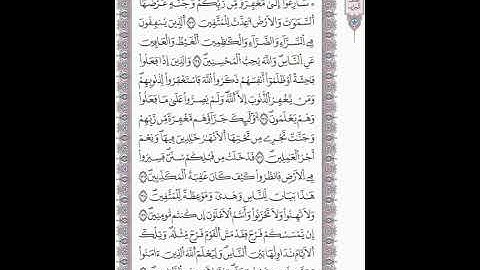 سَارِعُوٓا۟ إِلَىٰ مَغْفِرَةٍ مِّن رَّبِّكُمْ وَجَنَّةٍ عَرْضُهَا
اَ۬لسَّمَٰوَٰتُ وَالَارْضُ أُعِدَّتْ لِلْمُتَّقِينَ ۝ اَ۬لذِينَ يُنفِقُونَ
فِے اِ۬لسَّرَّآءِ وَالضَّرَّآءِ وَالْكَٰظِمِينَ اَ۬لْغَيْظَ وَالْعَافِينَ
عَنِ اِ۬لنَّاسِ وَاللَّهُ يُحِبُّ اُ۬لْمُحْسِنِينَ ۝ وَالذِينَ إِذَا فَعَلُوا۟
فَٰحِشَةً اَوْ ظَلَمُوٓا۟ أَنفُسَهُمْ ذَكَرُوا۟ اُ۬للَّهَ فَاسْتَغْفَرُوا۟ لِذُنُوبِهِمْ
وَمَنْ يَّغْفِرُ اُ۬لذُّنُوبَ إِلَّا اَ۬للَّهُ وَلَمْ يُصِرُّوا۟ عَلَىٰ مَا فَعَلُوا۟
وَهُمْ يَعْلَمُونَ ۝ أُو۟لَٰٓئِكَ جَزَآؤُهُم مَّغْفِرَةٌ مِّن رَّبِّهِمْ
وَجَنَّٰتٌ تَجْرِے مِن تَحْتِهَا اَ۬لَانْهَٰرُ خَٰلِدِينَ فِيهَا وَنِعْمَ
أَجْرُ اُ۬لْعَٰمِلِينَ ۝ قَدْ خَلَتْ مِن قَبْلِكُمْ سُنَنٌ فَسِيرُوا۟
فِے اِ۬لَارْضِ فَانظُرُوا۟ كَيْفَ كَانَ عَٰقِبَةُ اُ۬لْمُكَذِّبِينَ ۝
هَٰذَا بَيَانٌ لِّلنَّاسِ وَهُدىً وَمَوْعِظَةٌ لِّلْمُتَّقِينَ ۝
وَلَا تَهِنُوا۟ وَلَا تَحْزَنُوا۟ وَأَنتُمُ اُ۬لَاعْلَوْنَ إِن كُنتُم مُّومِنِينَ ۝
إِنْ يَّمْسَسْكُمْ قَرْحٌ فَقَدْ مَسَّ اَ۬لْقَوْمَ قَرْحٌ مِّثْلُهُۥ وَتِلْكَ
اَ۬لَايَّامُ نُدَاوِلُهَا بَيْنَ اَ۬لنَّاسِ وَلِيَعْلَمَ اَ۬للَّهُ اُ۬لذِينَ ءَامَنُوا۟